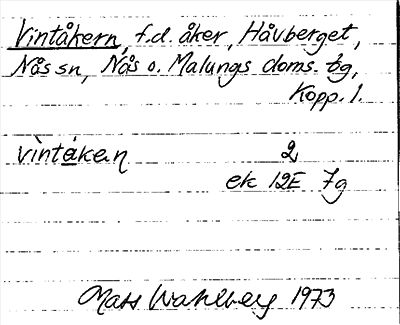 Vintåkern, f.d. åker, Håvberget,
Nås sn, Nås o. Malungs doms. tg,
Kopp. l.
vìntákan 2
ek 12E 7g
Mats Wahlberg 1973